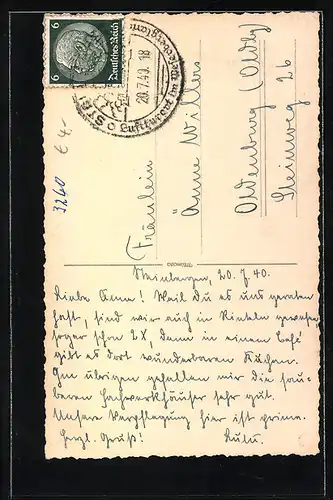 6 Deutsches Reich 6
20.7.40. 18
Luftkurort im Weserbergland
€ 4,-
3260
Fräulein
Änne Willers
Oldenburg (Oldbg)
Steinweg 26
Steinbergen, 20. 7. 40.
Liebe Änne! Weil Du es uns geraten
hast, sind wir auch in Rinteln gewesen,
sogar schon 2X, denn in einem Café
gibt es dort wunderbaren Kuchen.
Im übrigen gefallen mir die sau-
beren Fachwerkhäuser sehr gut.
Unsere Verpflegung hier ist prima.
Herzl. Gruß! Lulu.